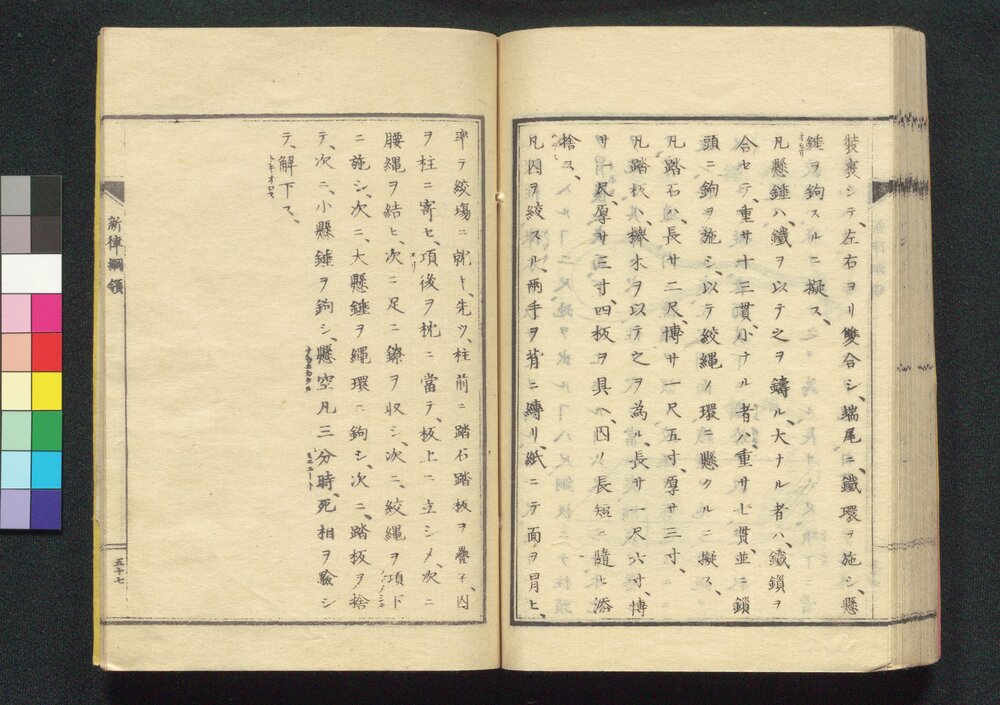 裝裹シテ、左右ヨリ雙合シ、端尾ニ、鐵環ヲ施シ、懸
錘ヲ鉤スルニ擬ス、
凡懸錘ハ、鐵ヲ以テ之ヲ鑄ル、大ナル者ハ、鐵鎖ヲ
合セテ、重サ十三貫、小ナル者ハ、重サ七貫、並ニ鎖
頭ニ鉤ヲ施シ、以テ絞繩ノ環ニ懸クルニ擬ス、
凡踏石ハ、長サ二尺、博サ一尺五寸、厚サ三寸、
凡踏板ハ、欅木ヲ以テ之ヲ為ル、長サ一尺六寸、博
サ一尺、厚サ三寸、四板ヲ具ヘ、囚ノ長短ニ隨ヒ添
捨ス、
凡囚ヲ絞スル、兩手ヲ背ニ縛リ、紙ニテ面ヲ冒ヒ、
率テ絞塲ニ就ト、先ツ、柱前ニ踏石踏板ヲ疊子、囚
ヲ柱ニ寄セ、項後ヲ枕ニ當テ、板上ニ立シメ、次ニ
腰繩ヲ結ヒ、次ニ足ニ鐐ヲ収シ、次ニ、絞繩ヲ項下
ニ施シ、次ニ、大懸錘ヲ繩環ニ鉤シ、次ニ、踏板ヲ捨
テ、次ニ、小懸錘ヲ鉤シ、懸空凡三分時、死相ヲ驗シ
テ、解下ス、
新律綱領
五十七